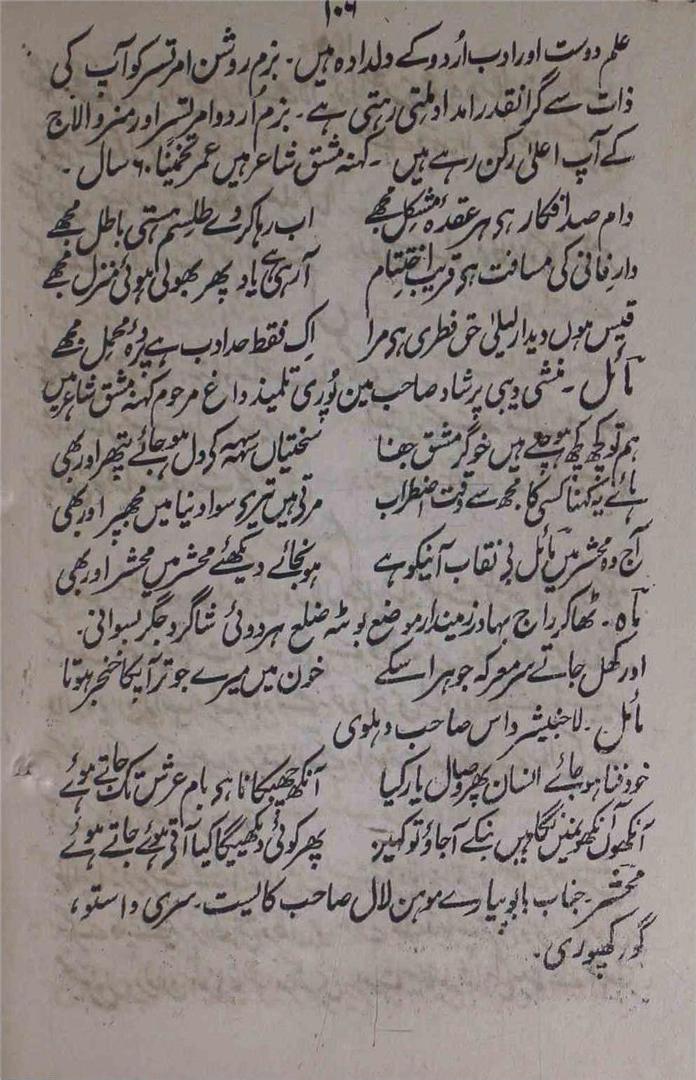 ۱۰۶
علم دوست اور ادب اُردو کے دلدادہ ہیں۔ بزم روشن امرتسر کو آپ کی
ذات سے گرانقدر امداد ملتی رہتی ہے۔ بزم اُردو امرتسر اور منروا لاج
کے آپ اعلیٰ رکن رہے ہیں۔ کہنہ مشق شاعر ہیں عمر تخمیناً ۶۰ سال۔
دام صد افکار ہی ہر عقدۂ مشکل مجھے اب رہا کر دے طلسم ہستی باطل مجھے
دار فانی کی مسافت ہی قریب اختتام آ رہی ہے یاد پھر بھولی ہوئی منزل مجھے
قیس ہوں دیدار لیلیٰ حق فطری ہی مرا اِک فقط حد ادب ہے پردۂ محمل مجھے
مائل۔ منشی دیبی پرشاد صاحب مین پُوری تلمیذ داغ مرحوم کہنہ مشق شاعر ہیں
ہم تو کچھ کچھ ہو چلے ہیں خوگر مشق جفا سختیاں سہہ کر دل ہو جائے پتھر اور بھی
ہائے یہ کہنا کسی کا مجھ سے وقت اضطراب مرتے ہیں تیرے سوا دنیا میں مجھپر اور بھی
آج وہ محشر میں مائل بے نقاب آنیکو ہے ہو نجائے دیکھئے محشر میں محشر اور بھی
ماہ۔ ٹھاکر راج بہادر زمیندار موضع بوٹہ ضلع ہردوئی شاگرد جگر بسوانی۔
اور کھل جاتے سر معرکہ جوہر اسکے خون میں میرے جو تر آپکا خنجر ہوتا
مائل۔ لا جنیشر داس صاحب دہلوی
خود فنا ہو جائے انسان پھر وصال یار کیا آنکھ جھپکانا ہی بام عرش تک جاتے ہوئے
آنکھوں آنکھوں میں نگاہیں بنکے آجاؤ تو کہیں پھر کوئی دیکھیگا کیا آتے ہوئے جاتے ہوئے
محشر۔ جناب بابو پیارے موہن لال صاحب کالیست۔ سری واستو،
گورکھپوری۔